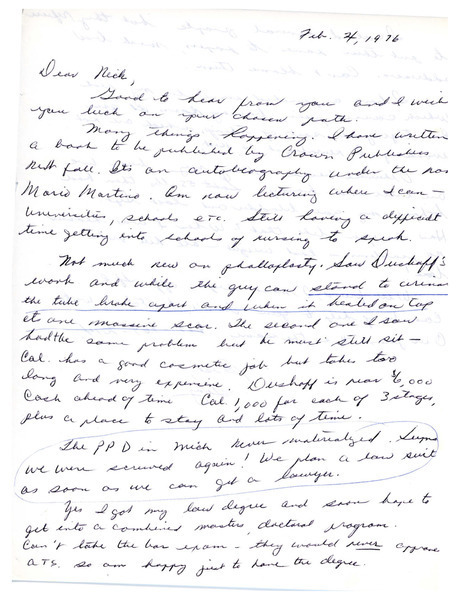 Feb. 4, 1976
Dear Nick,
Good to hear from you and I wish
you luck on your chosen path.
Many things happening. I have written
a book to be published by Crown Publishers
next fall. Its an autobiography under the
Mario Martino. Am now lecturing where I can –
Universities, schools etc. Still having a difficult
time getting into schools of nursing to speak.
Not much new on phalloplasty. Saw Dushoff's
work and while the guy can stand to urinate
the tube brake apart and when it healed on top
it one massive scar. The second one I saw
had the same problem but he must still sit –
Cal. has a good cosmetic job but takes too
long and very expensive. Dushoff is near $6,000
Cash ahead of time Cal. 1,000 for each of 3 stages,
plus a place to stay and lots of time.
The PPD in Mich never materialized. Seems
we were screwed again! We plan a law suit
as soon as we can get a lawyer.
Yes I got my law degree and soon hope to
get into a combined masters, doctoral program.
Can't take the bar exam – they would never approve
a T.S. so am happy just to have the degree.